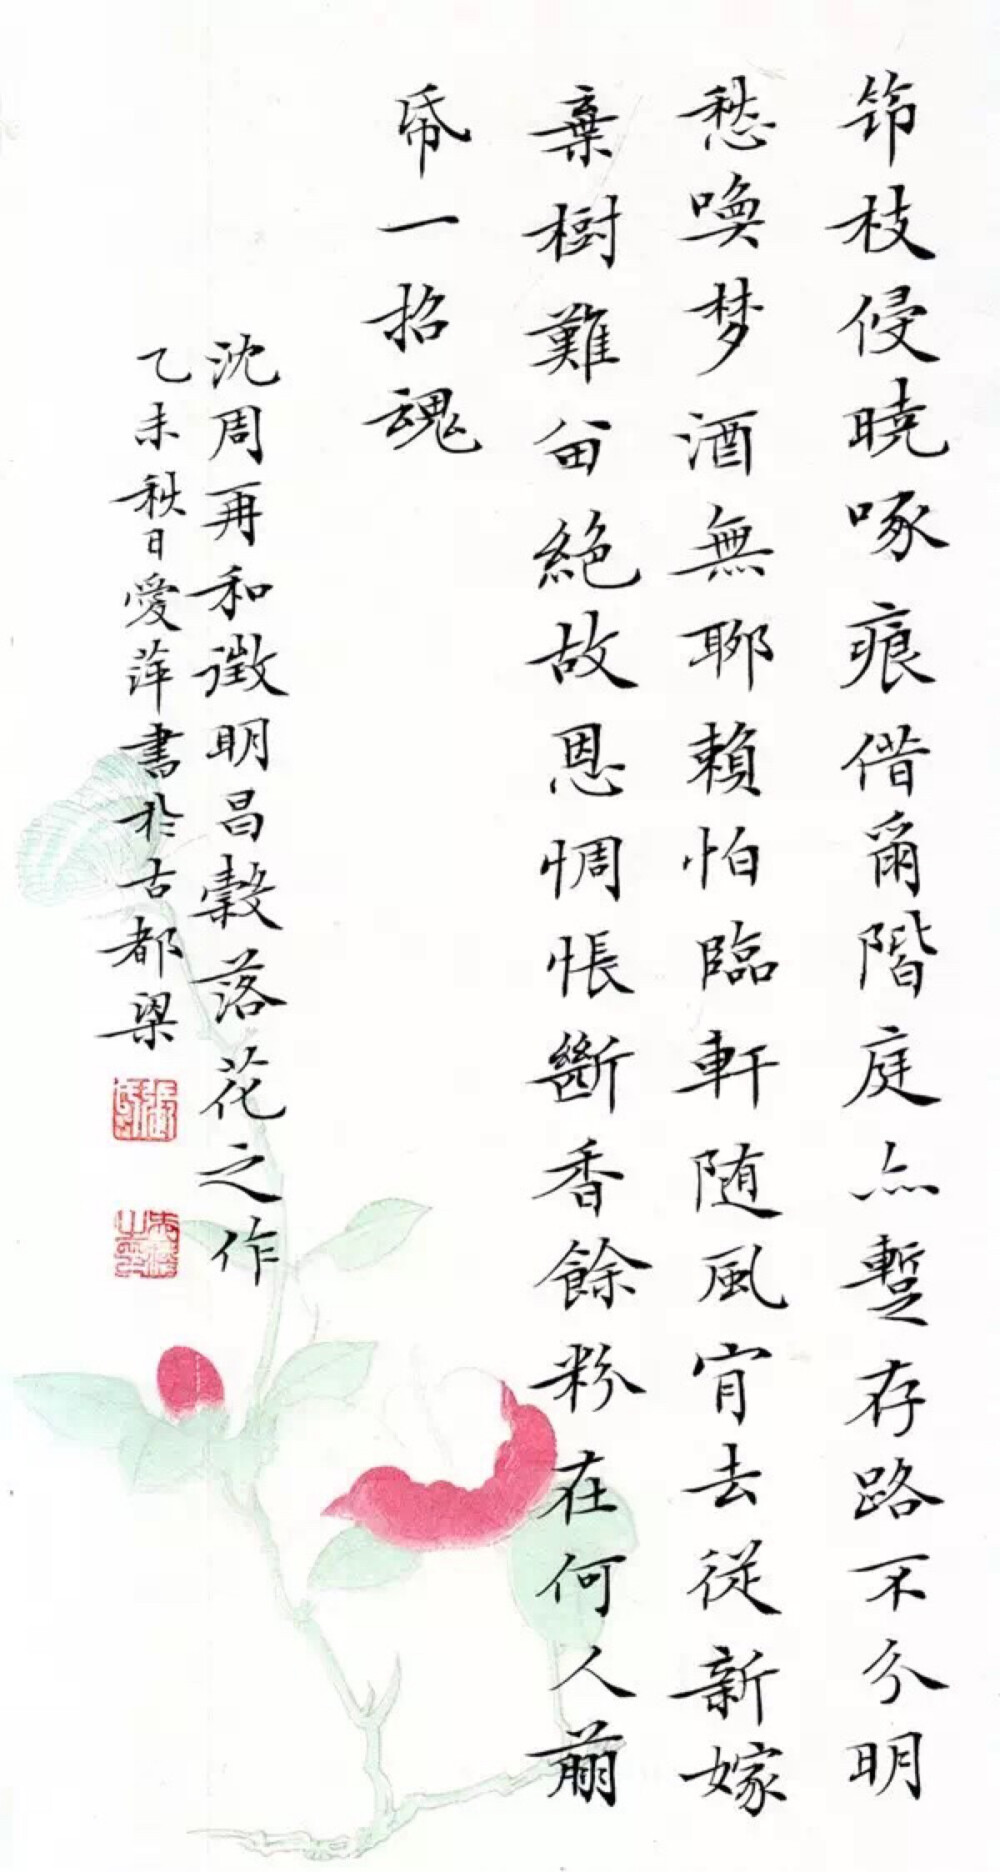 筇枝侵曉啄痕借爾階庭亦暫存路不分明
愁喚梦酒無聊賴怕臨軒随風肯去從新嫁
棄樹難留絕故恩惆悵斷香餘粉在何人剪
帋一招魂
沈周再和徵明昌穀落花之作
乙未秋日愛萍書於古都梁